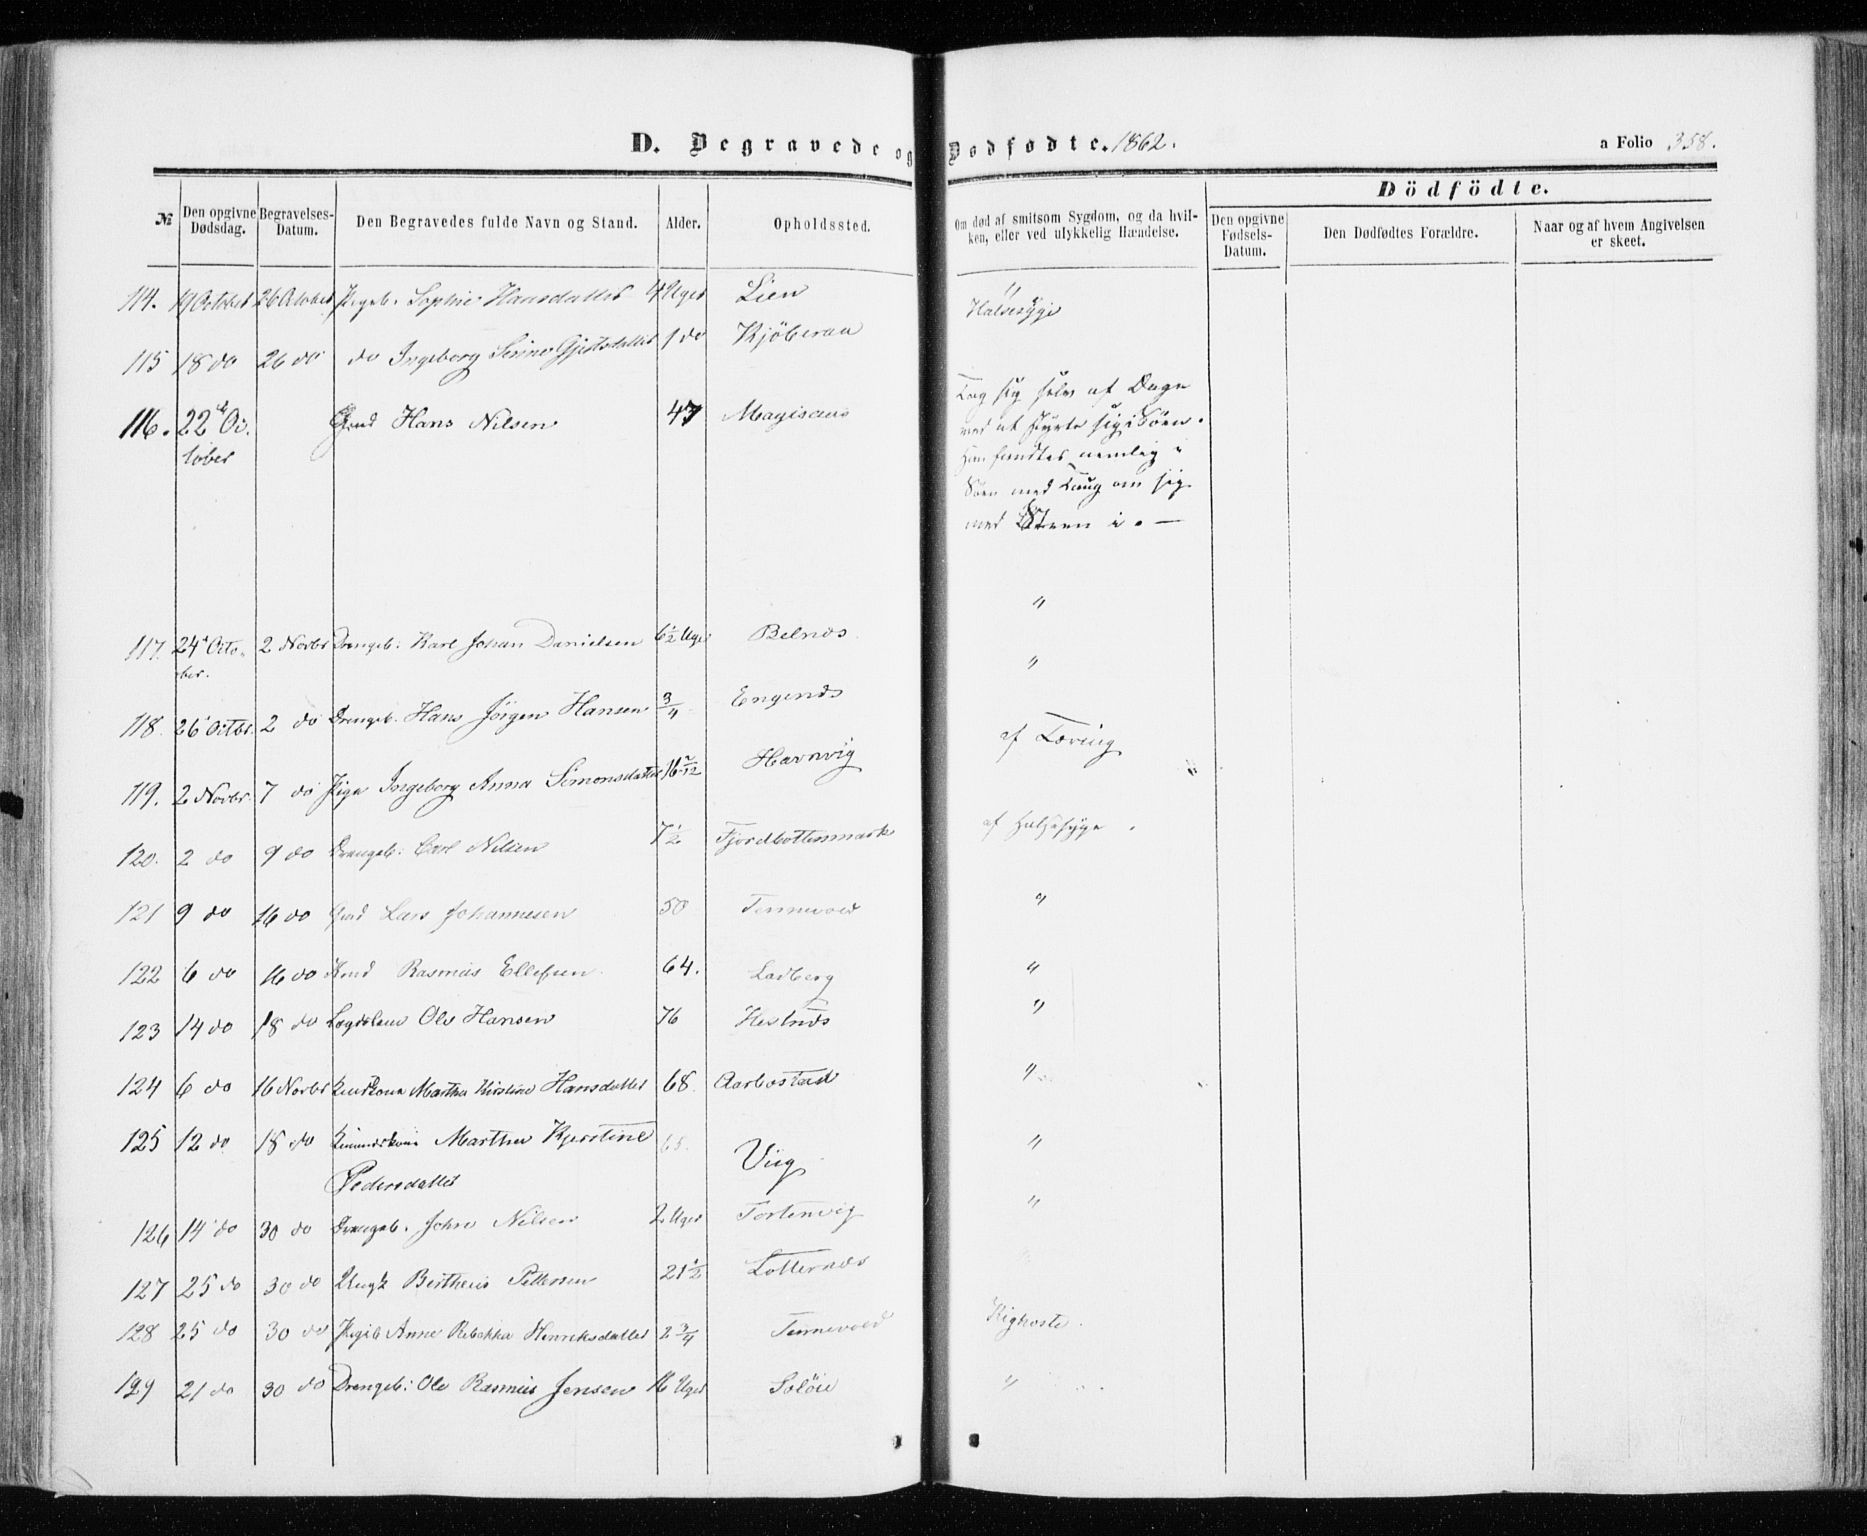 D. Begravede og Dødfødte. 1862.
a Folio 358.
Dödfödte.
№
Den opgivne Dødsdag.
Begravelses-Datum.
Den Begravedes fulde Navn og Stand.
Alder.
Opholdssted.
Om død af smitsom Sygdom, og da hvilken, eller ved ulykkelig Hændelse.
Den opgivne Fødsels-Datum.
Den Dødfødtes Forældre.
Naar og af hvem Angivelsen er skeet.
114. 19 October 26 October Pigeb. Sophie Hansdatter 4 Uger Lien "
115 18 do 26 do do Ingeborg Gjertsdatter 1 do Kjöberaa Halsesyge
116. 22de October Gmd Hans Nilsen 47 Tog sig selv af Dage
med at styrte sig i Söen.
Han fandtes nemlig i
Söen med Taug om sig
med Steen i. —
117. 24d October 2 Novbr Drengeb: Karl Johan Danielsen 6½ Uger Belnes "
118. 26 Octbr. 2 do Drengeb. Hans Jörgen Hansen 3/4 Engenes "
119. 2 Novbr. 7 do Pige Ingeborg Anna Simonsdatter 16 7/12 Havnvig af Tæring
120. 2 do 9 do Drengeb: Carl Nilsen 7½ Fjordbottenmark af Halsesyge.
121 9 do 16 do Gmd Lars Johannesen 50 Tennevold "
122 6 do 16 do Rasmus Ellefsen 64. Ladberg "
123 14 do 18 do Lægdslem Ole Hansen 76 Hestnes "
124 6 do 16 Novbr Martha Kirstine Hansdatter 68. Aarbostad "
125 12 do 18 do Marthe Kjerstine
Pedersdatter 65. Viig "
126 14 do 30 do Drengeb. John Nilsen 2 Uger "
127 25 do 30 do Ungk Bertheus Pettersen 21½ Lotternes
128 25 do 30 do Pigeb Anne Rebekka Henriksdatter 2 3/4 Tennevold Kighoste.
129 21 do 30 do Drengeb: Ole Rasmus Jensen 16 Uger Solöie "